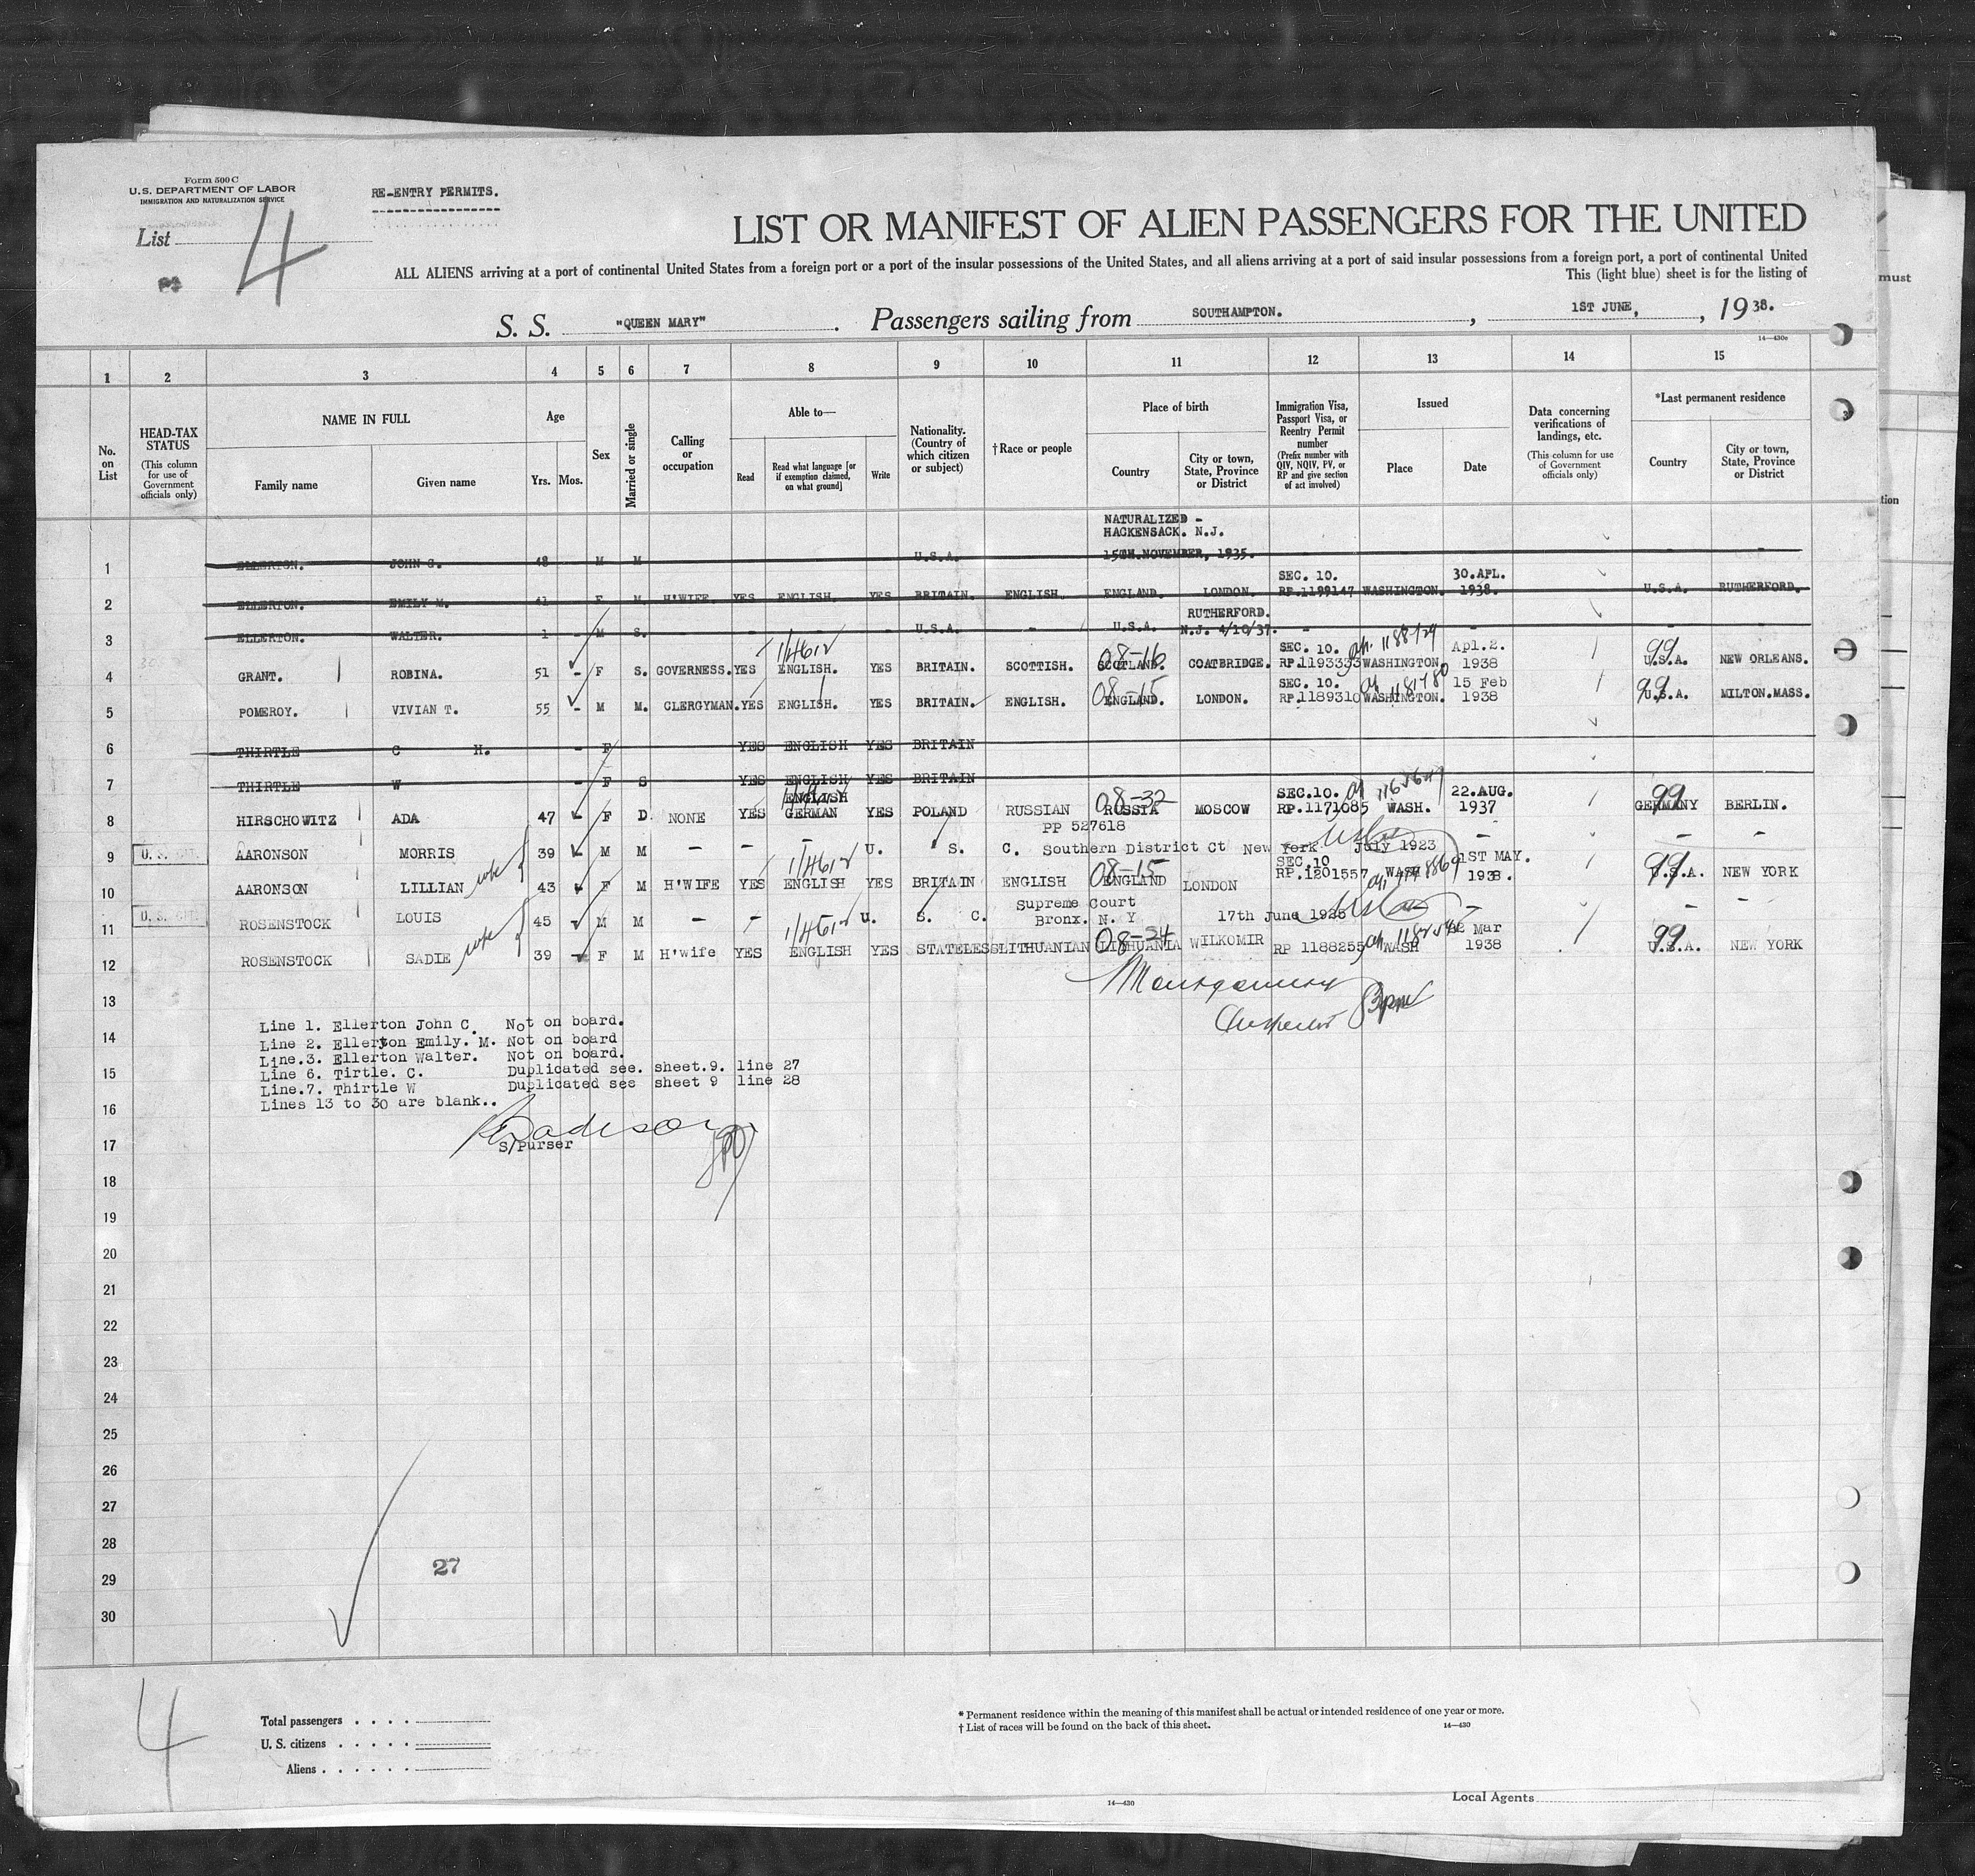 Form 500 C
U.S. DEPARTMENT OF LABOR
IMMIGRATION AND NATURALIZATION SERVICE
RE-ENTRY PERMITS.
List 4
LIST OR MANIFEST OF ALIEN PASSENGERS FOR THE UNITED
ALL ALIENS arriving at a port of continental United States from a foreign port or a port of the insular possessions of the United States, and all aliens arriving at a port of said insular possessions from a foreign port, a port of continental United
This (light blue) sheet is for the listing of
must
S. S. "QUEEN MARY". Passengers sailing from SOUTHAMPTON. , 1ST JUNE, , 19 38.
14—430c
1 2 3 4 5 6 7 8 9 10 11 12 13 14 15
No. on List
HEAD-TAX STATUS (This column for use of Government officials only)
NAME IN FULL
Family name Given name
Age
Yrs. Mos.
Sex
Married or single
Calling or occupation
Able to—
Read
Read what language [or if exemption claimed, on what ground]
Write
Nationality. (Country of which citizen or subject)
†Race or people
Place of birth
Country
City or town, State, Province or District
Immigration Visa, Passport Visa, or Reentry Permit number (Prefix number with QIV, NQIV, PV, or RP and give section of act involved)
Issued
Place Date
Data concerning verifications of landings, etc. (This column for use of Government officials only)
*Last permanent residence
Country
City or town, State, Province or District
tion
NATURALIZED -
HACKENSACK. N.J.
1 ELLERTON. JOHN C. 48 M M U.S.A. 15TH.NOVEMBER, 1935.
SEC. 10. 30.APL.
2 ELLERTON. EMILY M. 41 F M H'WIFE YES ENGLISH. YES BRITAIN. ENGLISH. ENGLAND. LONDON. RP.1199147 WASHINGTON. 1938. U.S.A. RUTHERFORD.
RUTHERFORD.
3 ELLERTON. WALTER. 1 - M S. - - - U.S.A. - U.S.A. N.J. 4/10/37. -
SEC. 10. Apl.2.
4 GRANT. ROBINA. 51 - F S. GOVERNESS. YES ENGLISH. YES BRITAIN. SCOTTISH. 08-16 SCOTLAND. COATBRIDGE. RP.1193333 WASHINGTON. 1938 99 U.S.A. NEW ORLEANS.
SEC. 10. 15 Feb
5 POMEROY. VIVIAN T. 55 - M M. CLERGYMAN. YES ENGLISH. YES BRITAIN. ENGLISH. 08-15 ENGLAND. LONDON. RP.1189310 WASHINGTON. 1938 99 U.S.A. MILTON.MASS.
6 THIRTLE C H. - F YES ENGLISH YES BRITAIN
7 THIRTLE W - F S YES ENGLISH YES BRITAIN
ENGLISH SEC.10. 22.AUG.
8 HIRSCHOWITZ ADA 47 - F D NONE YES GERMAN YES POLAND RUSSIAN 08-32 RUSSIA MOSCOW RP.1171685 WASH. 1937 99 GERMANY BERLIN.
PP 527618
9 AARONSON MORRIS 39 - M M - - - U. S. C. Southern District Ct New York July 1923 - - -
SEC. 10 1ST MAY.
10 AARONSON LILLIAN wife of 43 - F M H'WIFE YES ENGLISH YES BRITAIN ENGLISH 08-15 ENGLAND LONDON RP.1201557 WASH 1938. 99 U.S.A. NEW YORK
Supreme Court
11 ROSENSTOCK LOUIS 45 - M M - - U. S. C. Bronx. N. Y 17th June 1926 - - -
Mar
12 ROSENSTOCK SADIE wife of 39 - F M H'wife YES ENGLISH YES STATELESS LITHUANIAN LITHUANIA WILKOMIR RP 1188255 WASH 1938 99 U.S.A. NEW YORK
Montgomery
13
Line 1. Ellerton John C. Not on board.
14 Line 2. Ellerton Emily. M. Not on board
Line.3. Ellerton Walter. Not on board.
15 Line 6. Tirtle. C. Duplicated see. sheet.9. line 27
Line.7. Thirtle W Duplicated see sheet 9 line 28
16 Lines 13 to 30 are blank..
17 S/Purser
18
19
20
21
22
23
24
25
26
27
28
27
29
30
4
Total passengers . . . .
U. S. citizens . . . . .
Aliens . . . . . .
* Permanent residence within the meaning of this manifest shall be actual or intended residence of one year or more.
† List of races will be found on the back of this sheet. 14—430
14—430
Local Agents